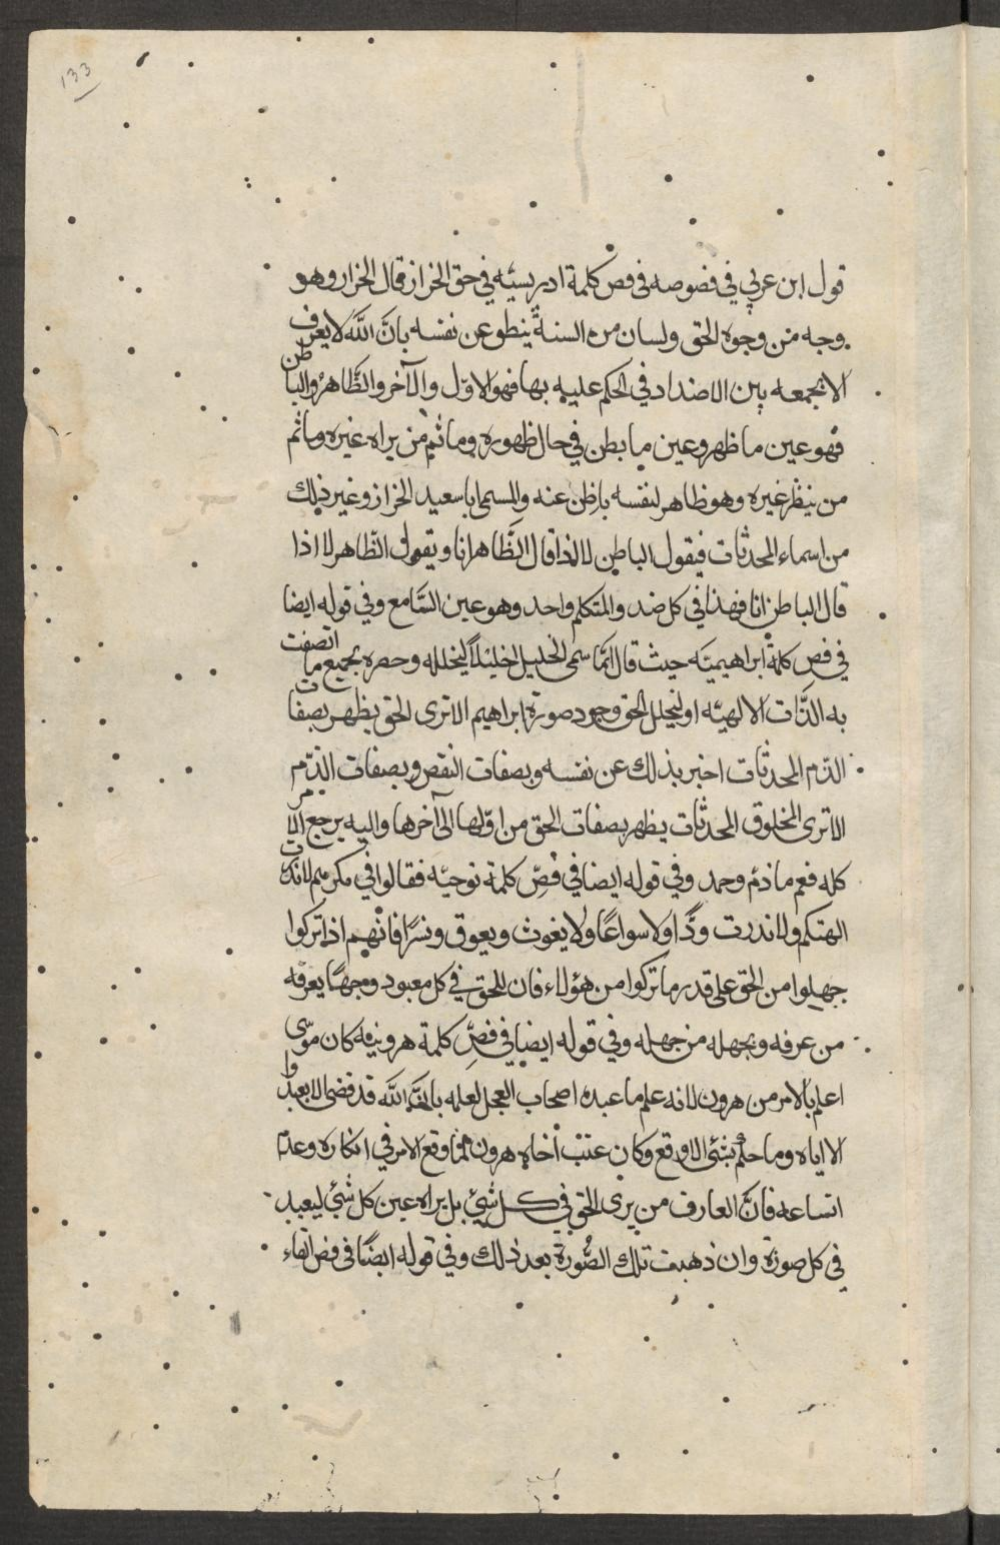 133
قول ابن عربي في فصوصه في فص كلمة ادريسيه في حق الخراز قال الخراز وهو
وجه من وجوه الحق ولسان من السنة ينطق عن نفسه بانّ اللّه لا يعرف
الا بجمعه بين الاضداد في الحكم عليه بها فهو الاوّل والآخر والظّاهر والباطن
فهو عين ما ظهر وعين ما بطن في حال ظهوره وما ثم من يراه غيره وما ثم
من ينظر غيره وهو ظاهر لنفسه باطن عنه والمسمى ابا سعيد الخراز وغير ذلك
من اسماء المحدثات فيقول الباطن لا اذا قال الظّاهر انا ويقول الظّاهر لا اذا
قال الباطن انا فهذا في كل ضد والمتكلم واحد وهو عين السّامع وفي قوله ايضا
في فص كلمة ابراهيميّه حيث قال انّما سمى الخليل خليلاً لتخلله وحصره بجميع ما اتصفت
به الذّات الالهيّه او لتخلل الحق وجود صورة ابراهيم الا ترى الحق يظهر بصفات
الذم المحدثات اخبر بذلك عن نفسه وبصفات النقص وبصفات الذّم
الا ترى المخلوق المحدثات يظهر بصفات الحق من اوّلها الى آخرها واليه يرجع الامر
كله فعم ما ذم وحمد وفي قوله ايضا في فصّ كلمة نوحيّه فقالوا في مكرهم لا تذرن
الهتكم ولا تذرن ودًّا ولا سواعًا ولا يغوث ويعوق ونسرًا فانّهم اذا تركوا
جهلوا من الحق على قدر ما تركوا من هؤلاء فان للحق في كل معبود وجهًا يعرفه
من عرفه ويجهله من جهله وفي قوله ايضا في فصّ كلمة هرونيه كان موسى
اعلم بالامر من هرون لانه علم ما عبده اصحاب العجل لعلمه بانّ اللّه قد قضى الا يعبدوا
الا اياه وما حكم بشئ الا وقع وكان عتب أخاه هرون لما وقع الامر في انكاره وعدم
اتساعه فانّ العارف من يرى الحق في كل شئ بل يراه عين كل شئ ليعبد
في كل صورة وان ذهبت تلك الصّورة بعد ذلك وفي قوله ايضًا في فص